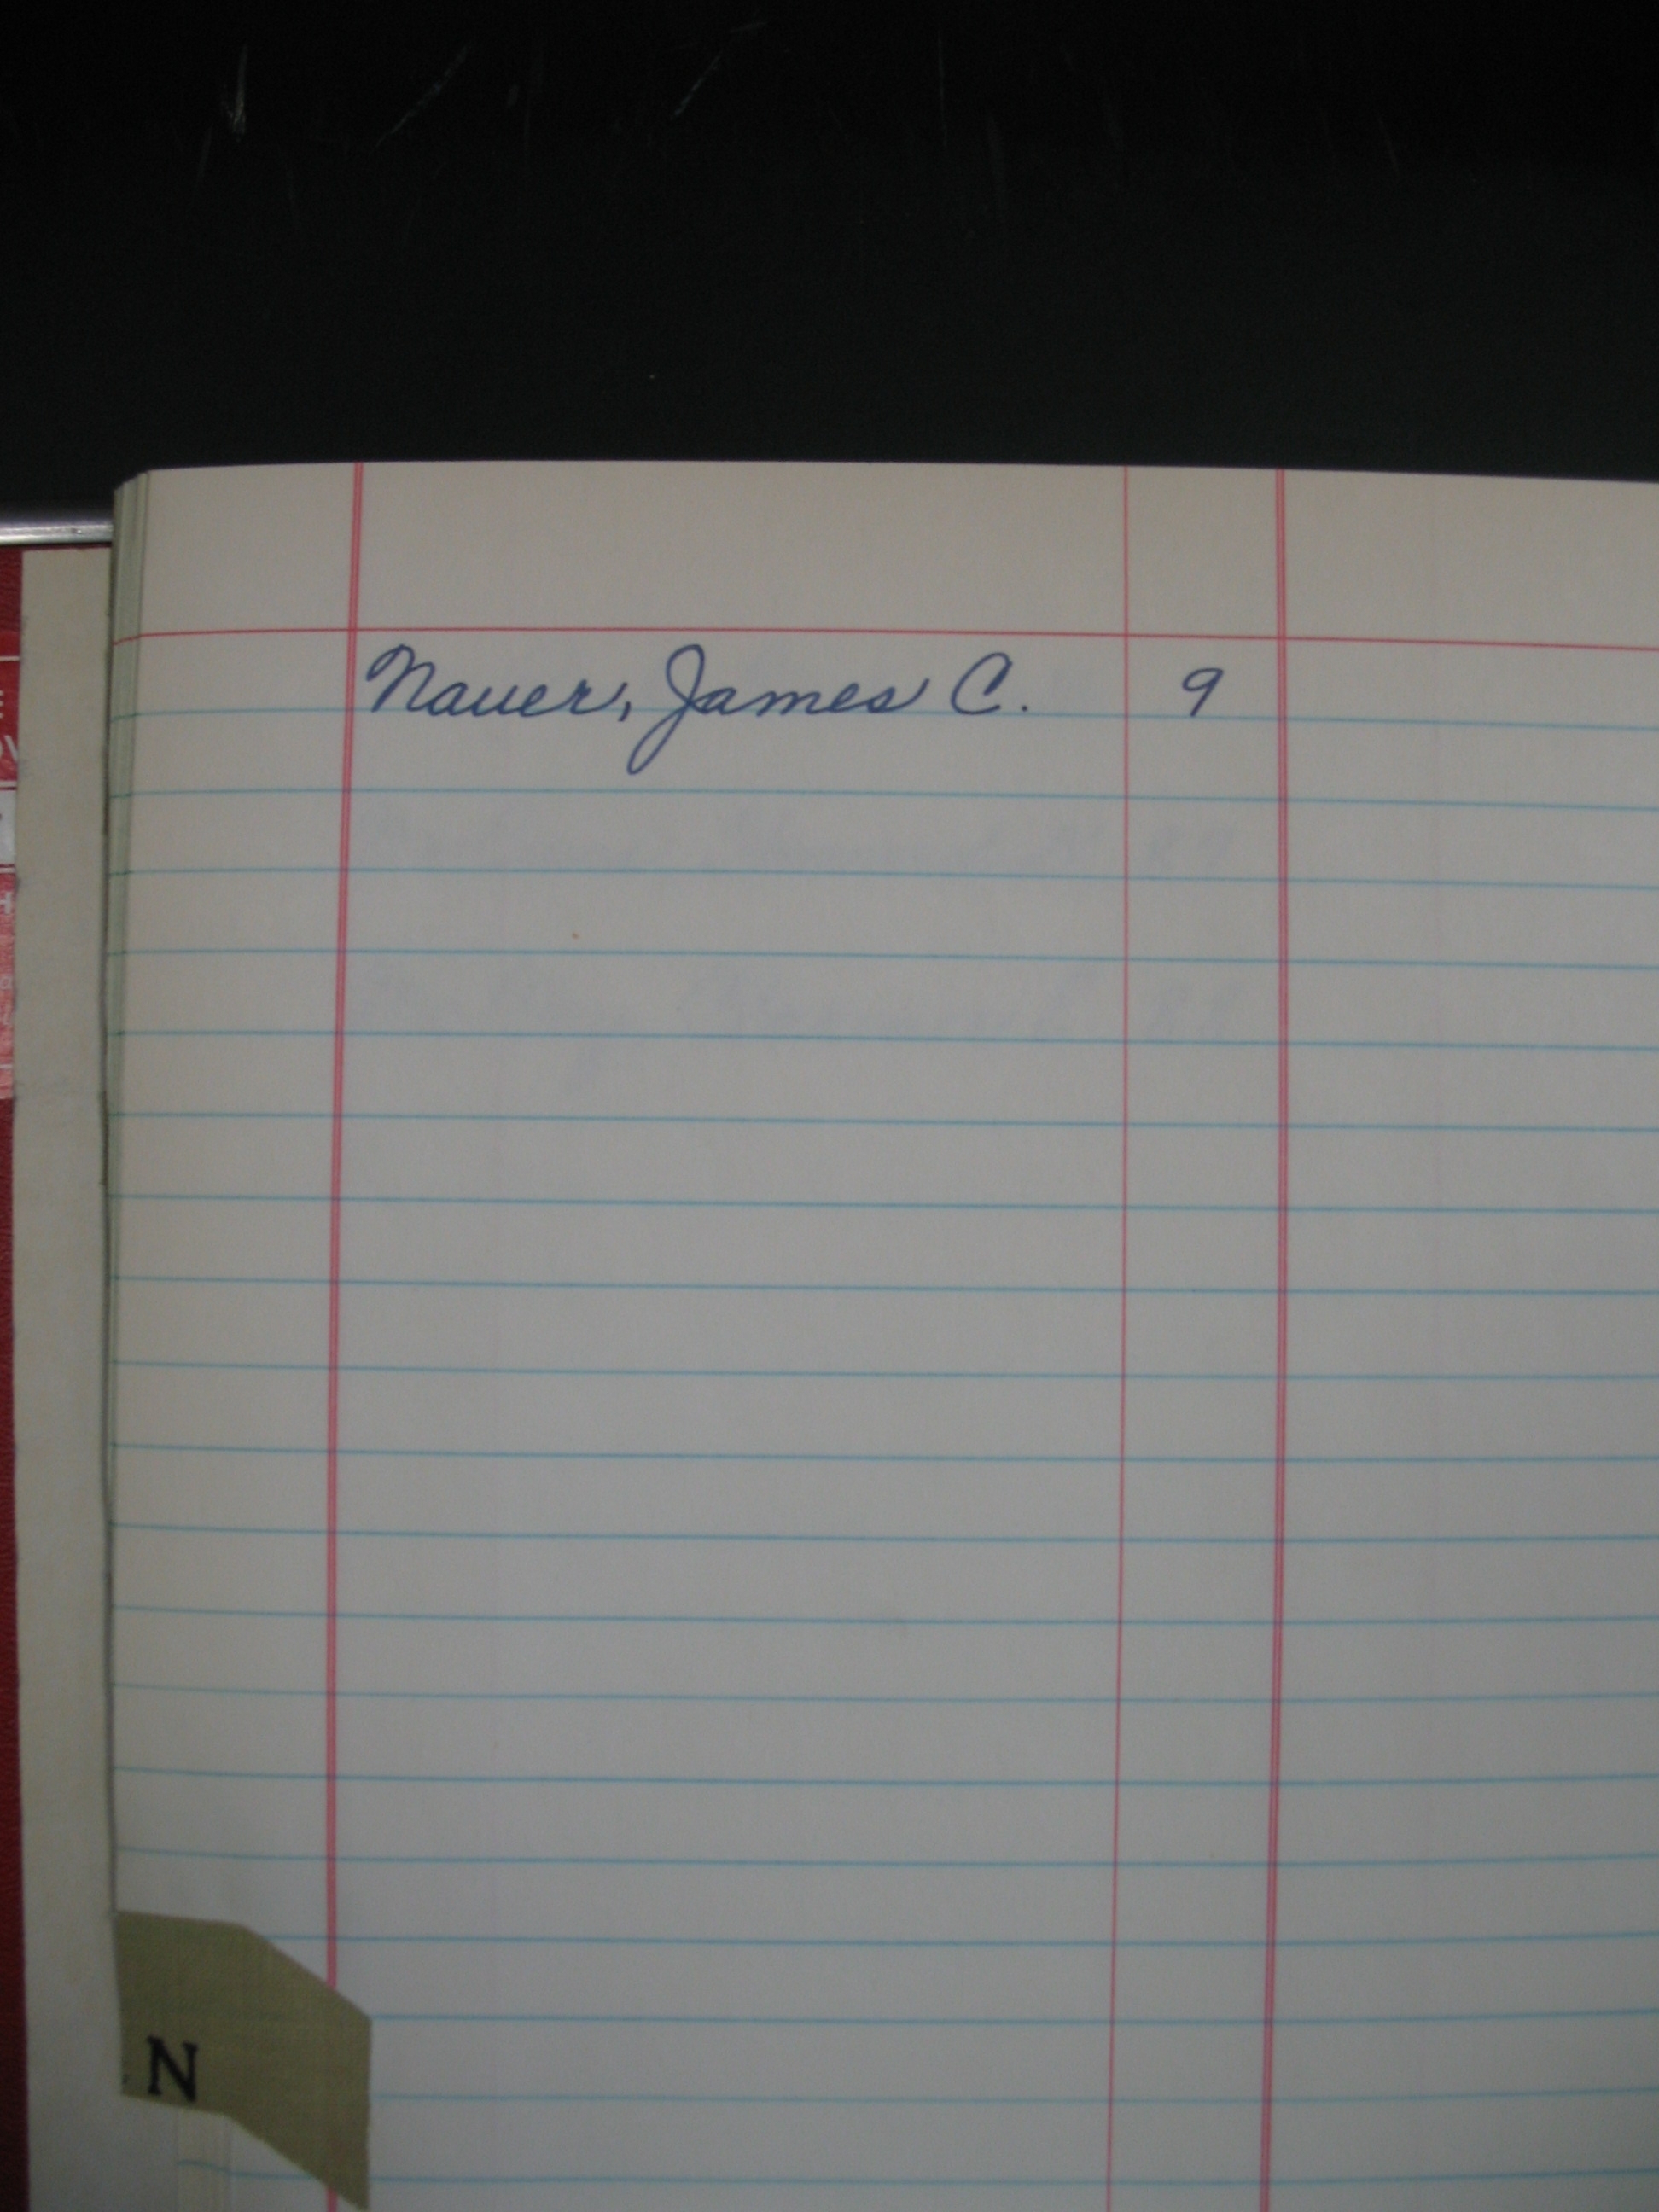 Nauer, James C. 9
N